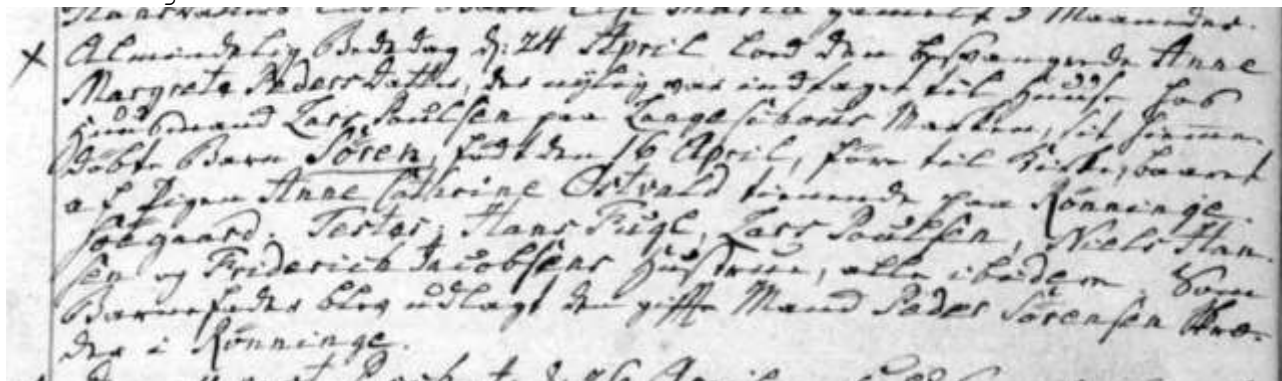 gamelt 3 Maaneder.
Almindelig Bededag d: 24 April lod den besvangrede Anne
Margrete Pedersdatter, der nylig var indtaget til Huuse hos
Huusmand Lars Poulsen paa Marken, sit hiemme-
döbte Barn Sören, födt den 16 April, före til Kirke, baaret
af Pigen Anne Cathrine Ostvald tienende paa Rönninge-
söegaard. Testes: Hans Fugl, Lars Poulsen, Niels Han-
sen og Friderich Jacobsens Hustrue, alle ibidem. Som
Barnefader blev udlagt den gifte Mand Peder Sörensen
der i Rönninge.
April